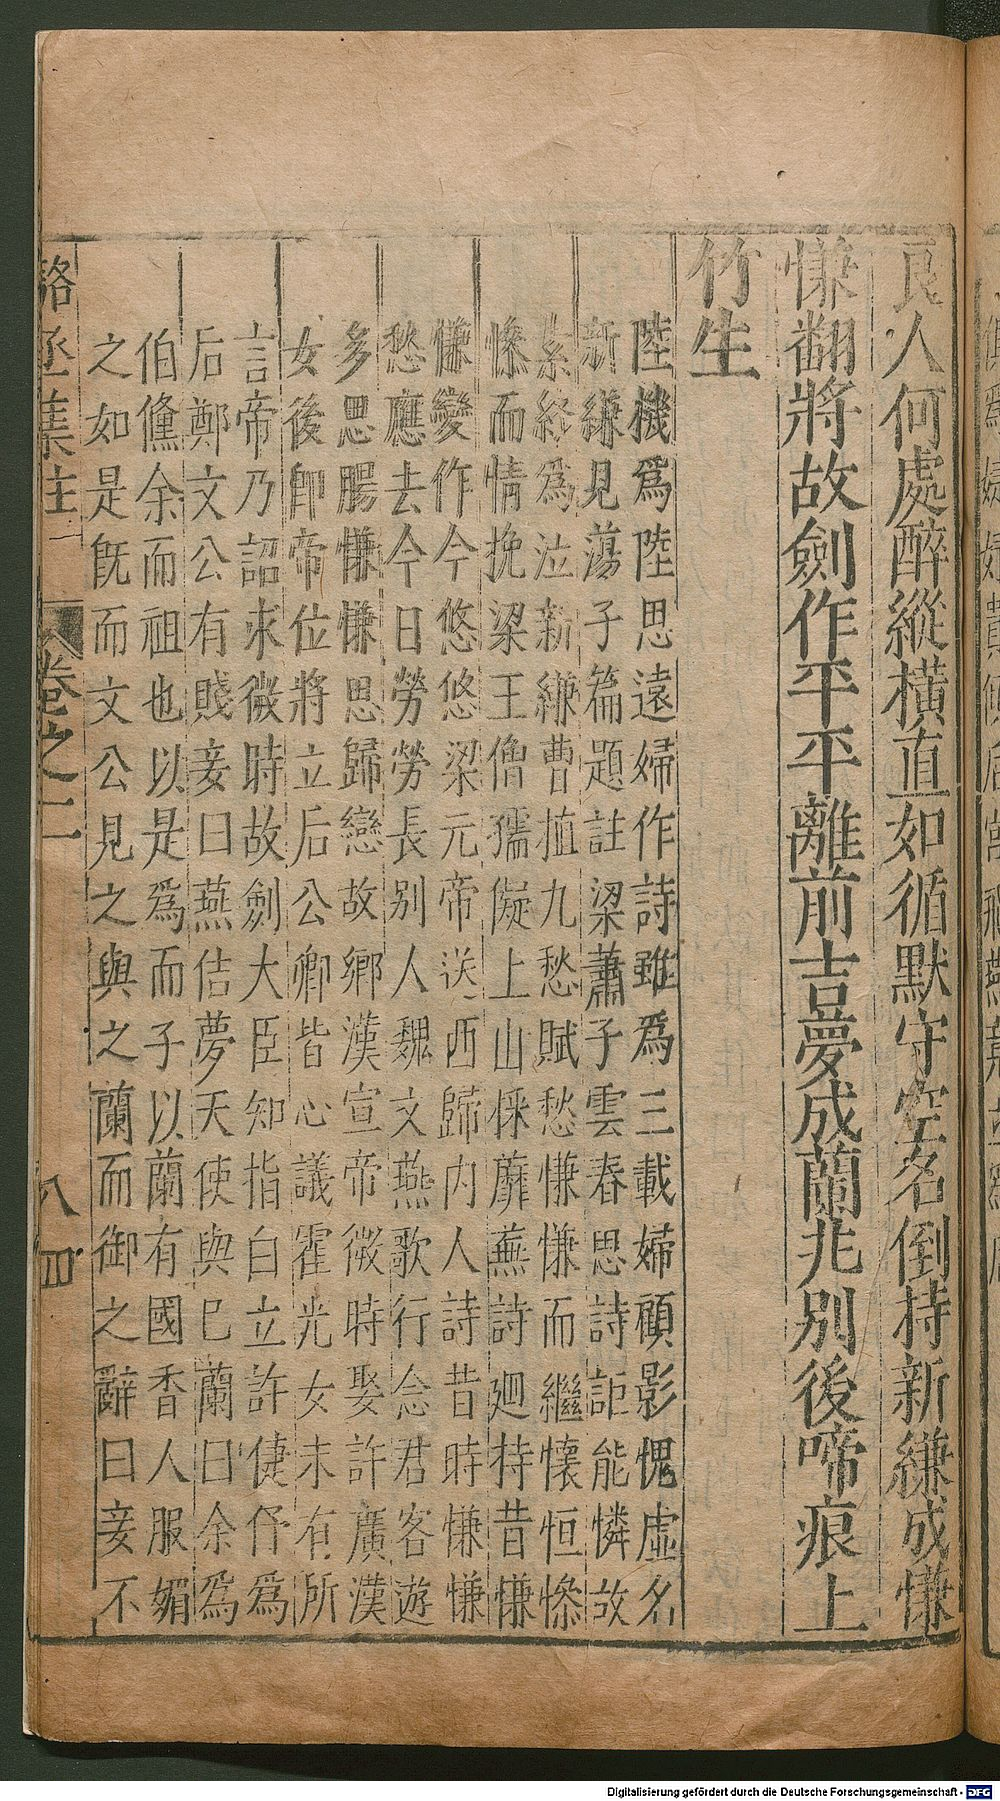 良人何處醉縱橫直如循默守空名倒持新縑成慊
慊翻將故劍作平平離前吉夢成蘭兆別後啼痕上
竹生
陸機爲陸思遠婦作詩雖爲三載婦顧影愧虛名
新縑見蕩子篇題註梁蕭子雲春思詩詎能憐故
素終爲泣新縑曹植九愁賦愁慊慊而繼懷恒慘
慘而情挽梁王僧孺儗上山採蘼蕪詩廻持昔慊
慊變作今悠悠梁元帝送西歸內人詩昔時慊慊
愁應去今日勞勞長別人魏文燕歌行念君客遊
多思腸慊慊思歸戀故鄉漢宣帝微時娶許廣漢
女後卽帝位將立后公卿皆心議霍光女未有所
言帝乃詔求微時故劍大臣知指白立許倢伃爲
后鄭文公有賤妾曰燕佶夢天使與已蘭曰余爲
伯鯈余而祖也以是爲而子以蘭有國香人服媚
之如是旣而文公見之與之蘭而御之辭曰妾不
駱丞集註 卷之二 八 四
Digitalisierung gefördert durch die Deutsche Forschungsgemeinschaft - DFG